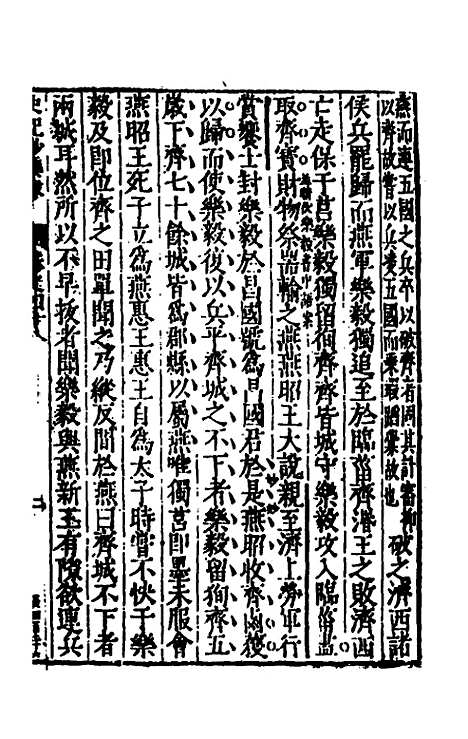 燕而連五國之兵卒以破齊有周其計審抑
以齊故嘗以兵凌五國而樂毅蹈集故也 破之濟西諸
侯兵罷歸而燕軍樂毅獨追至於臨菑齊湣王之敗濟西
亡走保于莒樂毅獨留徇齊齊皆城守樂毅攻入臨菑盡
取齊寶財物祭器輸之燕燕昭王大說親至濟上勞軍行
賞饗士封樂毅於昌國號為昌國君於是燕昭收齊鹵獲
以歸而使樂毅復以兵平齊城之不下者樂毅留徇齊五
歲下齊七十餘城皆為郡縣以屬燕唯獨莒即墨未服會
燕昭王死子立為燕惠王惠王自為太子時嘗不快于樂
毅及即位齊之田單聞之乃縱反間於燕曰齊城不下者
兩城耳然所以不早拔者聞樂毅與燕新王有隙欲連兵